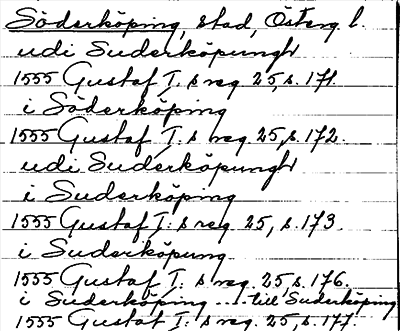 Söderköping, stad, Österg. l.
udi Suderköpungh
1555 Gustaf I:s reg. 25, s. 171.
i Söderköping
1555 Gustaf I:s reg. 25, s. 172.
udi Suderköpungh
i Suderköping
1555 Gustaf I:s reg. 25, s. 173.
i Suderköpung
1555 Gustaf I:s reg. 25, s. 176.
i Suderköping ... till Suderköping
1555 Gustaf I:s reg. 25, s. 177.